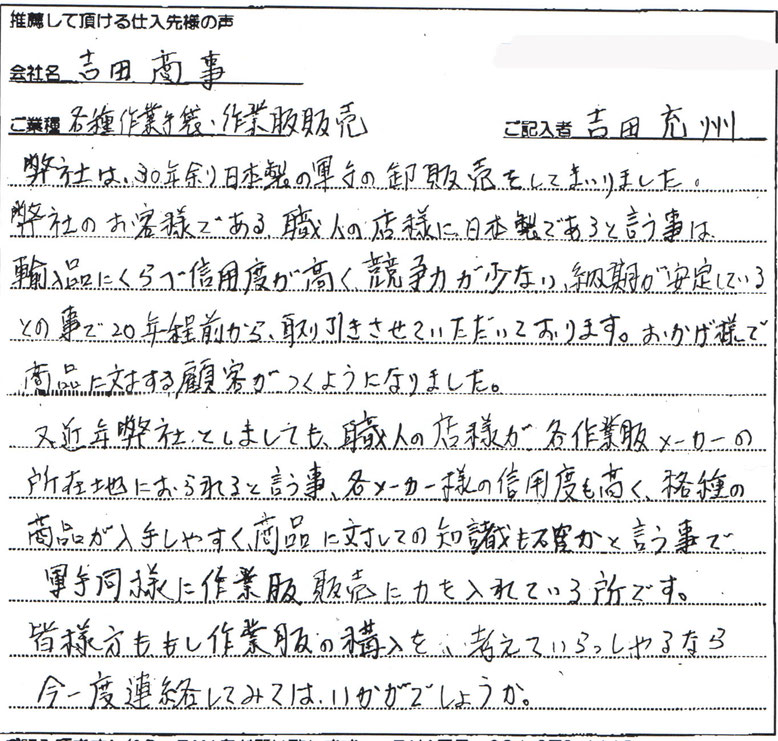 推薦して頂ける仕入先様の声
会社名 吉田商事
ご業種 各種作業手袋・作業服販売 ご記入者 吉田充州
弊社は、30年余り日本製の軍手の卸販売をしてまいりました。
弊社のお客様である、職人の店様に、日本製であると言う事は
輸入品にくらべ信用度が高く、競争力が少ない、納期が安定している
との事で20年程前から、取り引きさせていただいております。おかげ様で
商品に対する顧客がつくようになりました。
又近年弊社としましても、職人の店様が各作業服メーカーの
所在地におられると言う事、各メーカー様の信用度も高く、各種の
商品が入手しやすく、商品に対しての知識も確かと言う事で
軍手同様に作業服販売に力を入れている所です。
皆様方ももし作業服の購入を、考えていらっしゃるなら
今一度連絡してみては、いかがでしょうか。